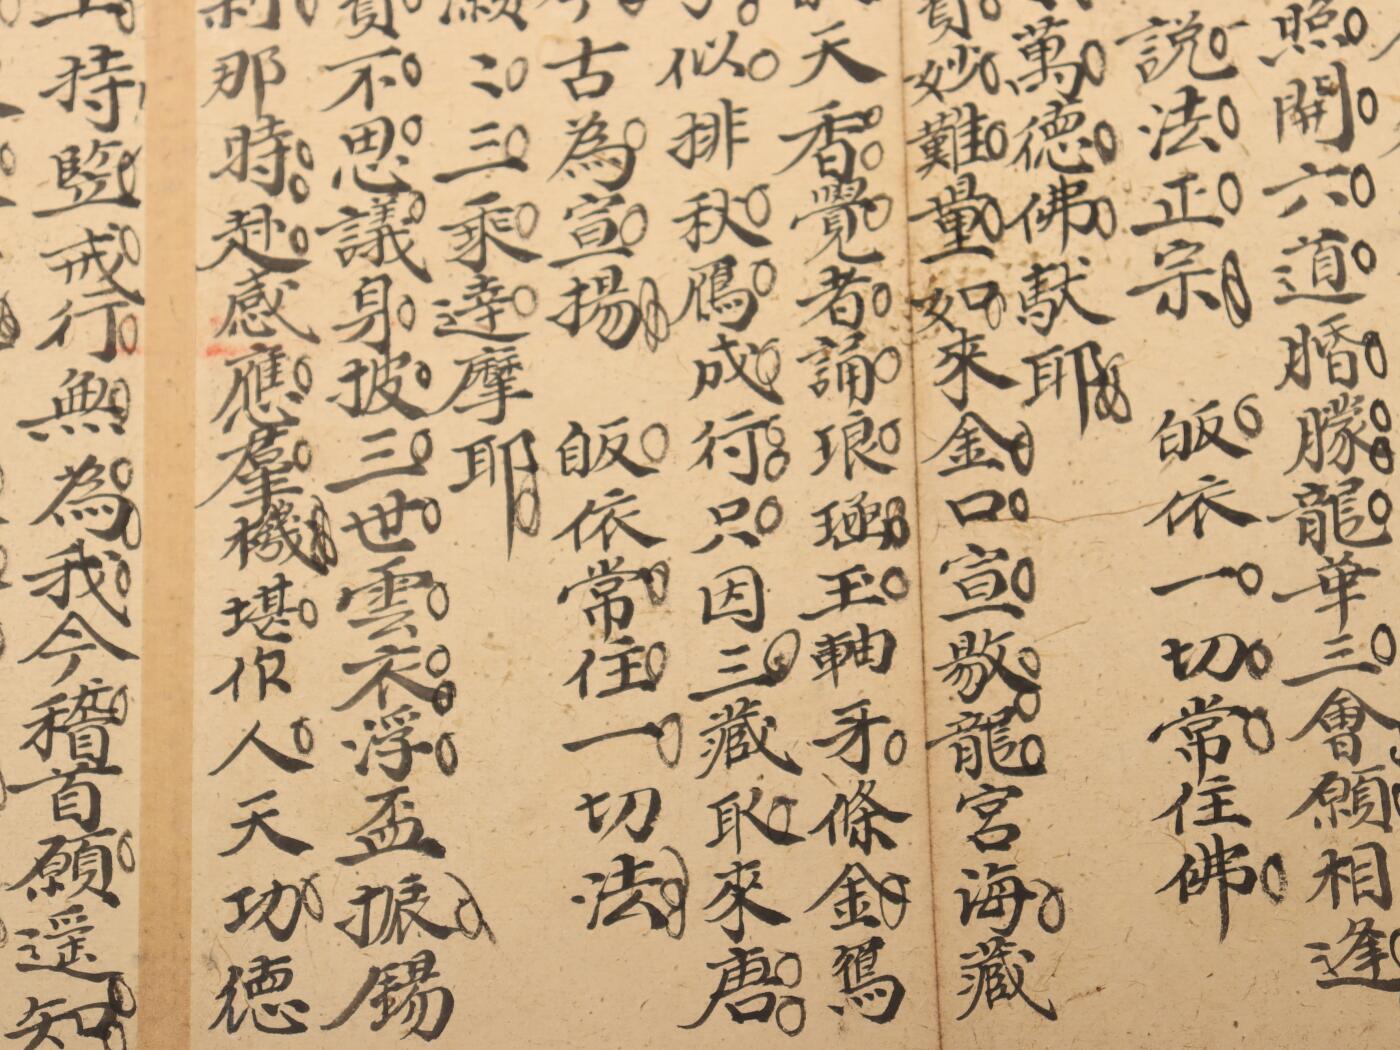 照開六道睧朦龍華三會願相逢
說法正宗　皈依一切常住佛
萬德佛馱耶
妙難量如來金口宣敭龍宮海藏
天香覺者誦琅玉軸牙條金寫
似排秋鴈成行只因三藏取來唐
古為宣揚　皈依常住一切法
〻三乘達摩耶
不思議身披三世雲衣浮盃振錫
剎那時赴感應羣機堪作人天功德
持監戒行無為我今稽首願遥知